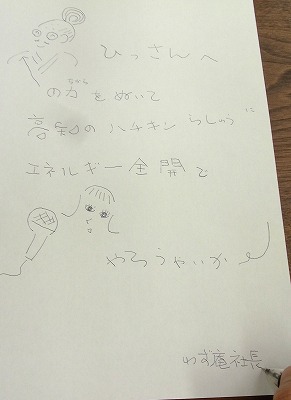 ひっさんへ
の力をぬいて
ちから
高知のハチキンらしゅうに
エネルギー全開で
やろうやいか
わず庵社長